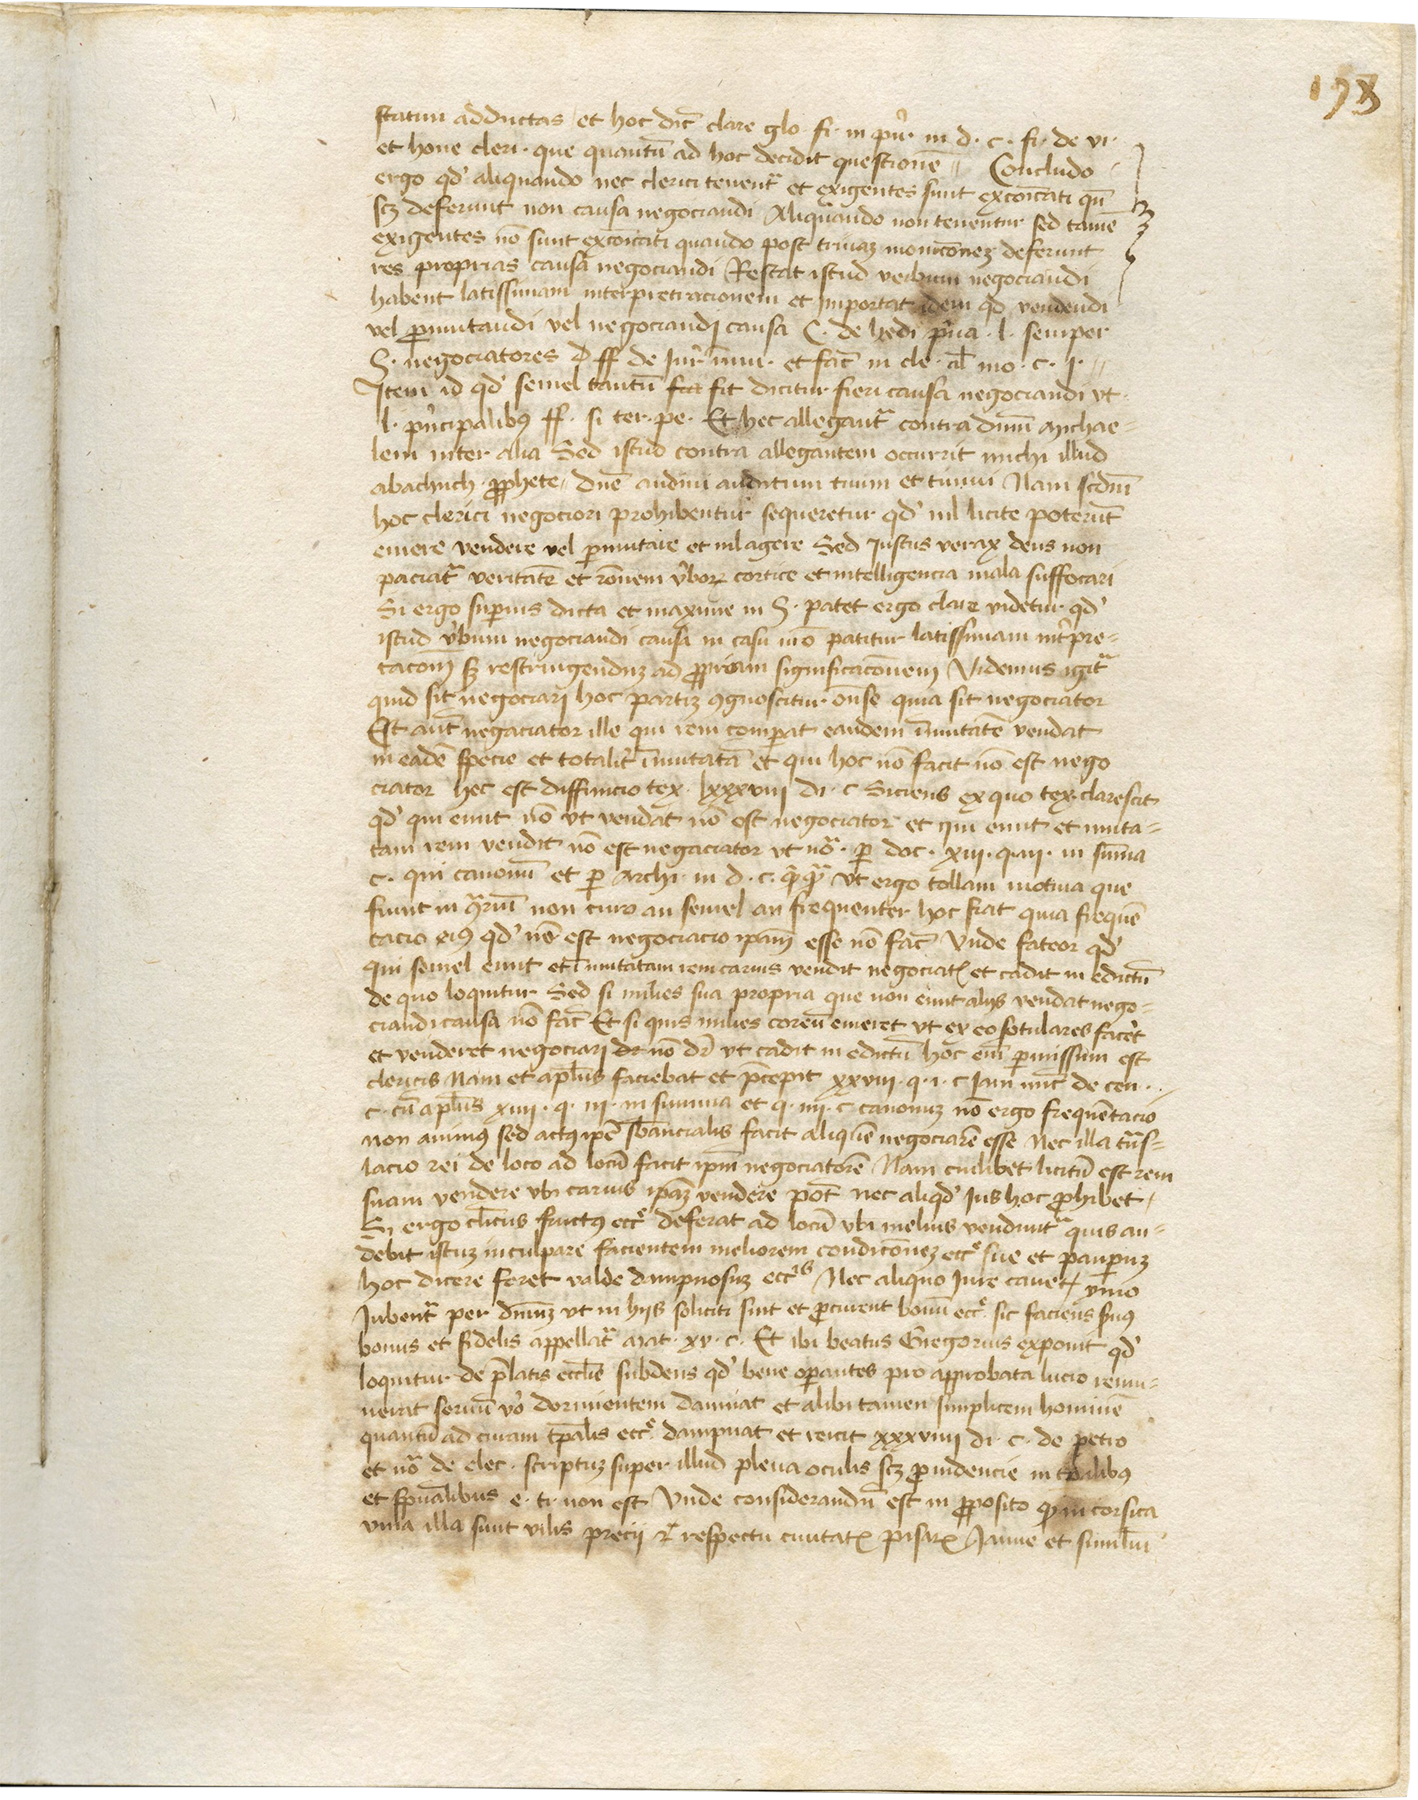 198
statum adductas et hoc dic̄ clare glo. fi. in pri͛. in d. c. fi. de vi.
et hone cleri. que quantū ad hoc decidit questionē // Concludo
ergo qd' aliquando nec clerici tenent͛ et exigentes sunt excōicati qn̄
scꝫ deferunt non causa negociandi Aliquando non tenentur sed tamē
exigentes nō sunt excōicati quando post trinaꝫ monicōneꝫ deferunt
res proprias causa negociandi Restat istud verbum negociandi
habent latissimam interpretracionem et importat idem qd vendendi
vel ꝑmutandi vel negociandi causa C. de hedi pri͛ua. l. semper
S. negociatores ff de iur͛ īmu. et fac̄ in cle. al̄ mo. c. i. //
Item id qd' semel tantū fit dicitur fieri causa negociandi vt
l. pri͛ncipalibꝰ ff. si cer. pe. Et hec allegant͛ contra dn̄m Micha=
lem inter alia Sed istud contra allegantem occurrit michi illud
abachuch prophete // Dn̄e audiui auditum tuum et timui Nam scdm̄
hoc clerici negociori prohibentur sequeretur qd' nil licite poterūt
emere vendere vel ꝑmutare et nil agere Sed Justus verax deus non
paciat͛ veritatē et rōnem v͛boꝝ cortice et intelligencia mala suffocari
Si ergo suꝑius dicta et maxime in S. patet ergo clare videtur qd'
istud v͛bum negociandi causa in casu nrō patitur latissimam int͛pre=
tacōm sꝫ restringenduꝫ ad ꝓpriam significacōnem Videmus igit͛
quid sit negociari hoc partiꝫ ꝯgnoscitur onſe quia sit negociator
Est aut̄ negaciator ille qui rem comꝑat eandem īmutatē vendat
in eadē specie et totalit͛ īmutatā et qui hoc nō facit nō est nego
ciator hec est diffinicio tex. lxxxviii di. c Eiciens ex quo tex. clarescit
qd' qui emit nō vt vendat nō est negociator et qui emit et muta=
tam rem vendit nō est negaciator vt no͛. ꝑ doc. xiii. q. ii. in sum̄a
c. qui canonū et ꝑ Archi. in d. c. qͣqͣ vt ergo tollam motiua que
fiunt in ꝯ͛riū non curo an semel an frequenter hoc fiat quia frequē
tacio eiꝰ qd' nō est negociacio ipam̄ esse nō fac̄ Vnde fateor qd'
qui semel emit et īmutatam rem carius vendit negociat͛ et cadit in edictū
de quo loquitur Sed si milies sua propria que non emit alijs vendat nego=
ciandi causa nō fac̄ Et si quis milies coreū emeret vt ex eo sotulares fac͛et
et venderet negociari nō dr̄ vt cadit in edictū hoc em̄ ꝑmissum est
clericis Nam et apl̄us faciebat et p̄cepit xxviii. q. i. c Iam nūc de cen..
c. cū apl̄us xiiii. q. iii. in summa et q. iiii. c canonuꝫ nō ergo frequētacio
non animꝰ sed actꝰ ipē sb̄ancialis facit aliquē negociarē esse Nec illa trās=
lacio rei de loco ad locū facit ipm̄ negociatorē Nam cuilibet licitū est rem
suam vendere vbi carius ipaꝫ vendere pōt nec aliqd' Ius hoc ꝓhibet.
Si ergo cl̄icus fructꝰ ecc͛ deferat ad locū vbi melius vendunt͛ quis au=
debit istuꝫ inculpare facientem meliorem condicōneꝫ ecc͛ sue et pauꝑuꝫ
hoc dicere foret valde dampnosuꝫ ecc͛is Nec aliquo Iure cauet͛ ymo
Jubent͛ per dm̄ꝫ vt in hijs soliciti sint et ꝓcurent bonū ecc͛. sic faciens s͛uus
bonus et fidelis appellat͛ Mat. xv. c. Et ibi beatus Gregorius exponit qd'
loquitur de p̄latis eccl̄ie subdens qd' bene oꝑantes pro approbata lucio remu=
nerat seruū vo͛ dormientem damnat et alibi tamen simplicem hominē
quantū ad curam tp̄alis ecc͛. dampnat et reicit xxxviiii di. c. de petro
et no͛ de elec. scriptuꝫ super illud plena oculis scꝫ ꝓuidencie in tp̄alibꝰ
et sp̄ualibus e. ti. non est Vnde considerandū est in ꝓposito qd' in corsica
vina illa sunt vilis precij et respectu ciuitat͛ pisar͛ Janue et simil̄m